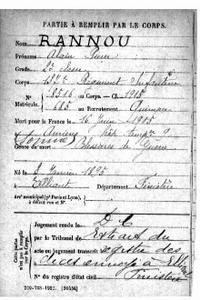 PARTIE À REMPLIR PAR LE CORPS.
Nom RANNOU
Prénoms Alain
Grade 2e classe
Corps 137e Régiment d'Infanterie
N° au Corps. — Cl. 1915
Matricule. 685 au Recrutement Quimper
Mort pour la France le 16 Juin 1915
à
Genre de mort Blessures de Guerre
Né le Janvier 1895
à Elliant Département Finistère
Arr' municipal (pr Paris et Lyon),
à défaut rue et N°.
Jugement rendu le D C
par le Tribunal de Extrait du
acte ou jugement transcrit le registre des
décès envoyé à Elliant
N° du registre d'état civil Finistère